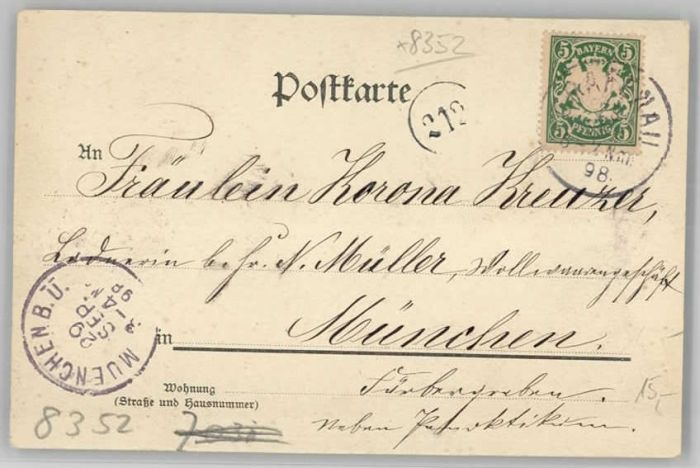 *8352
5 BAYERN 5
5 PFENNIG 5
Postkarte
212
98.
An
Fräulein Korona Kreuzer,
Ladnerin bei Hr. N. Müller, Wollwarengeschäft
in
München.
MUENCHEN B.Ü.
29
SEP.
Wohnung
(Straße und Hausnummer)
Färbergraben.
neben Panoktikum.
15,-
8352